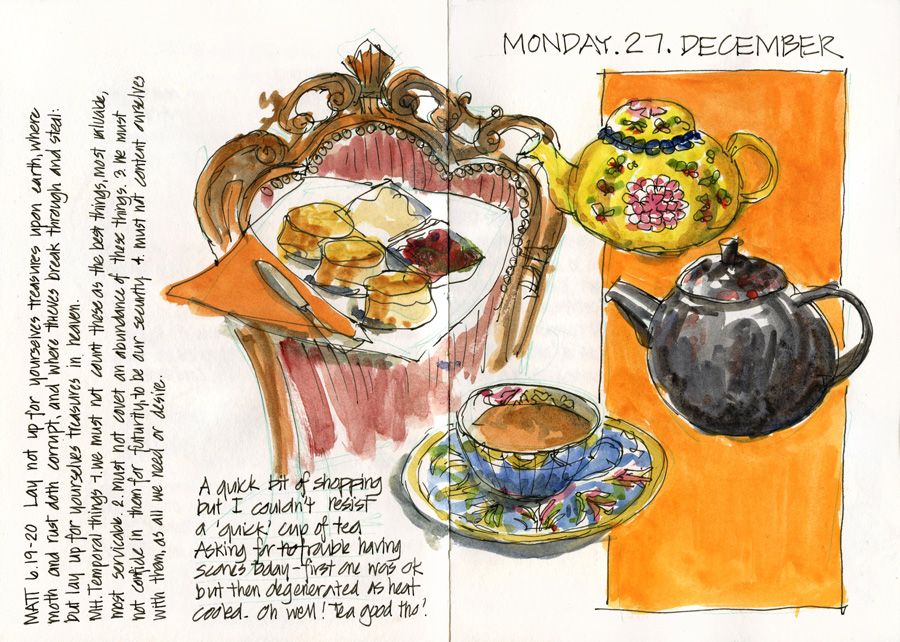 MONDAY. 27. DECEMBER
MATT 6.19-20 Lay not up for yourselves treasures upon earth, where
moth and rust doth corrupt, and where thieves break through and steal:
but lay up for yourselves treasures in heaven.
MH. Temporal things 1. we must not count these as the best things, most valuable,
most servicable 2. Must not covet an abundance of these things. 3. We must
not confide in them for futurity, to be our security 4. Must not content ourselves
with them, as all we need or desire.
A quick bit of shopping
but I couldn't resist
a 'quick' cup of tea
Asking for trouble having
scones today - first one was OK
but then degenerated as heat
cooled. Oh well! Tea good tho'!